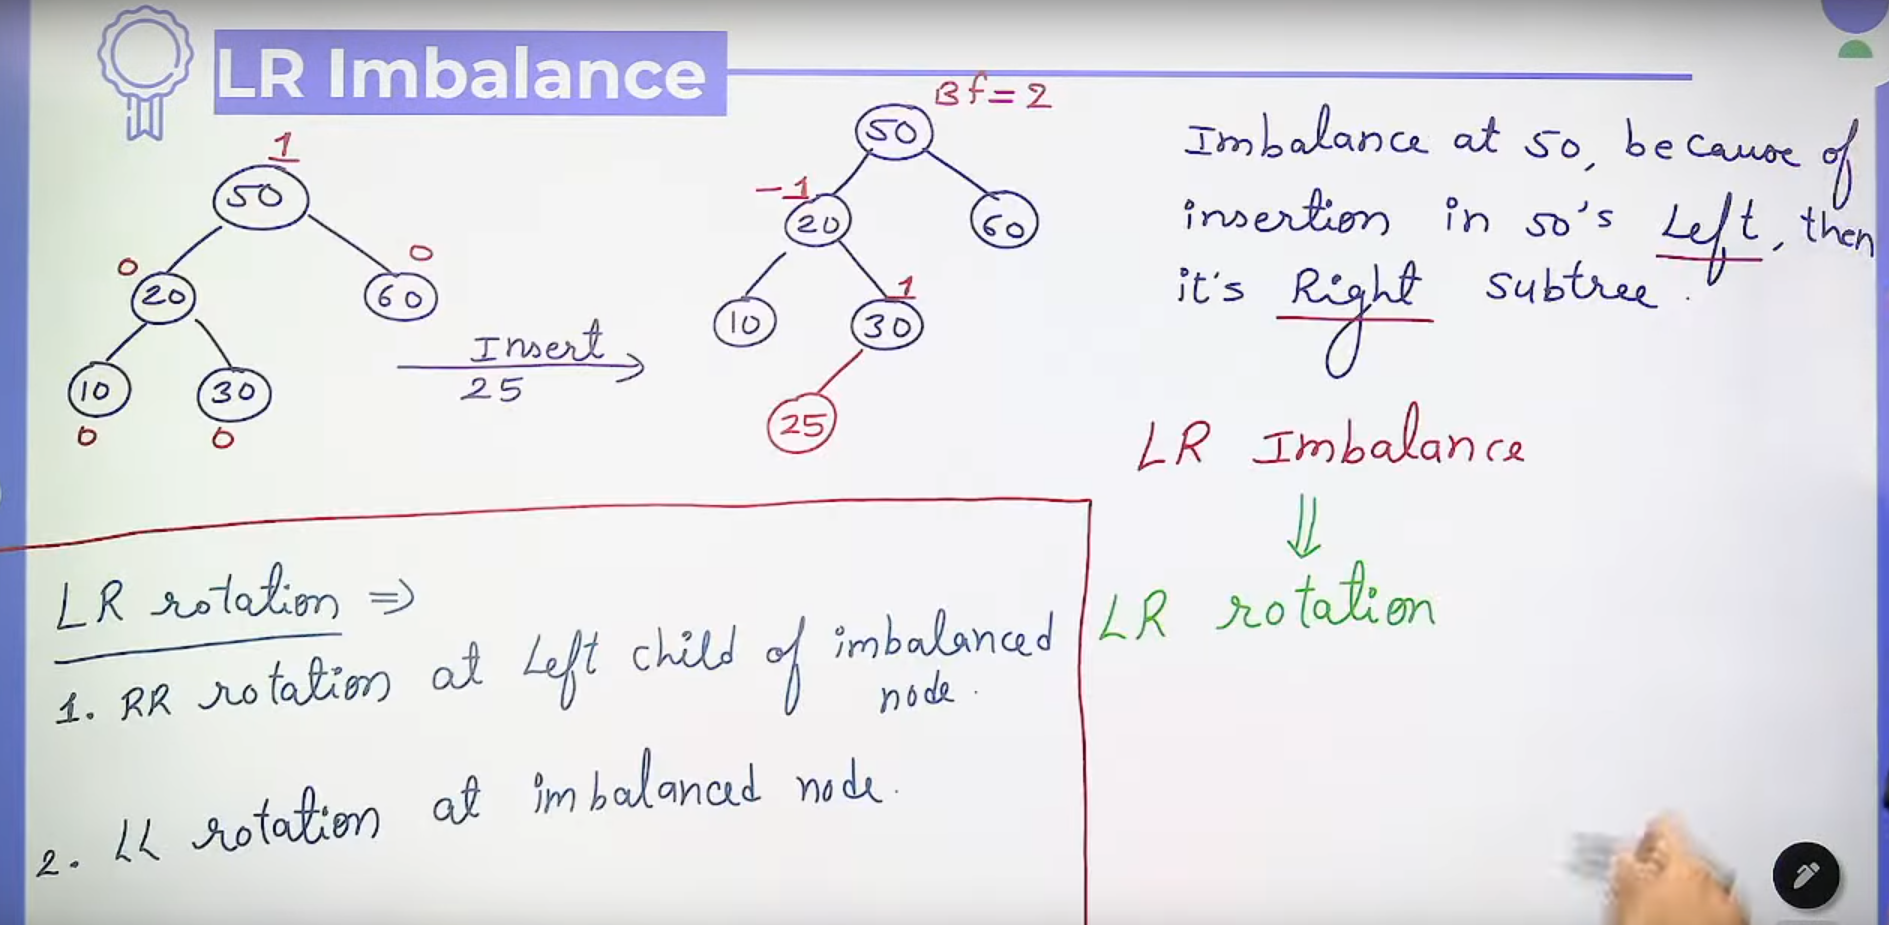 LR Imbalance
1
50
0
20
0
60
10
0
30
0
Insert
25
Bf = 2
50
-1
20
60
10
1
30
25
Imbalance at 50, because of
insertion in 50's Left, then
it's Right subtree.
LR Imbalance
⇓
LR rotation
LR rotation ⇒
1. RR rotation at Left child of imbalanced
node.
2. LL rotation at imbalanced node.